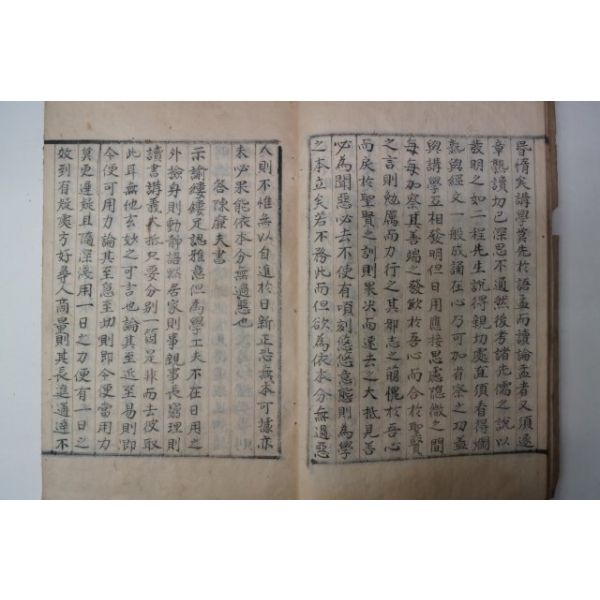 昏惰矣講學莫先於語孟而讀論孟者又須逐
章熟讀切己深思不通然後考諸先儒之說以
發明之如二程先生說得親切處直須看得爛
熟與經文一般成誦在心乃可加省察之功盖
與講學互相發明但日用應接思慮隱微之間
每每加察其善端之發歉於吾心而合於聖賢
之言則勉厲而力行之其邪志之萌愧於吾心
而戾於聖賢之訓則果决而速去之大抵見善
必為聞惡必去不使有頃刻悠悠意態則為學
之本立矣若不務此而但欲為依本分無過惡
人則不惟無以自進於日新正恐無本可據亦
未必果能依本分無過惡也
答陳廢夫書
示諭縷縷足認雅意但為學工夫不在日用之
外撿身則動靜語默居家則事親事長窮理則
讀書講義大抵只要分别一箇是非而去彼取
此耳無他玄妙之可言也論其至近至易則即
今便可用力論其至急至切則即今便當用力
莫更遲疑且隨深淺用一日之力便有一日之
效到有疑處方好尋人商量則其長進通達不